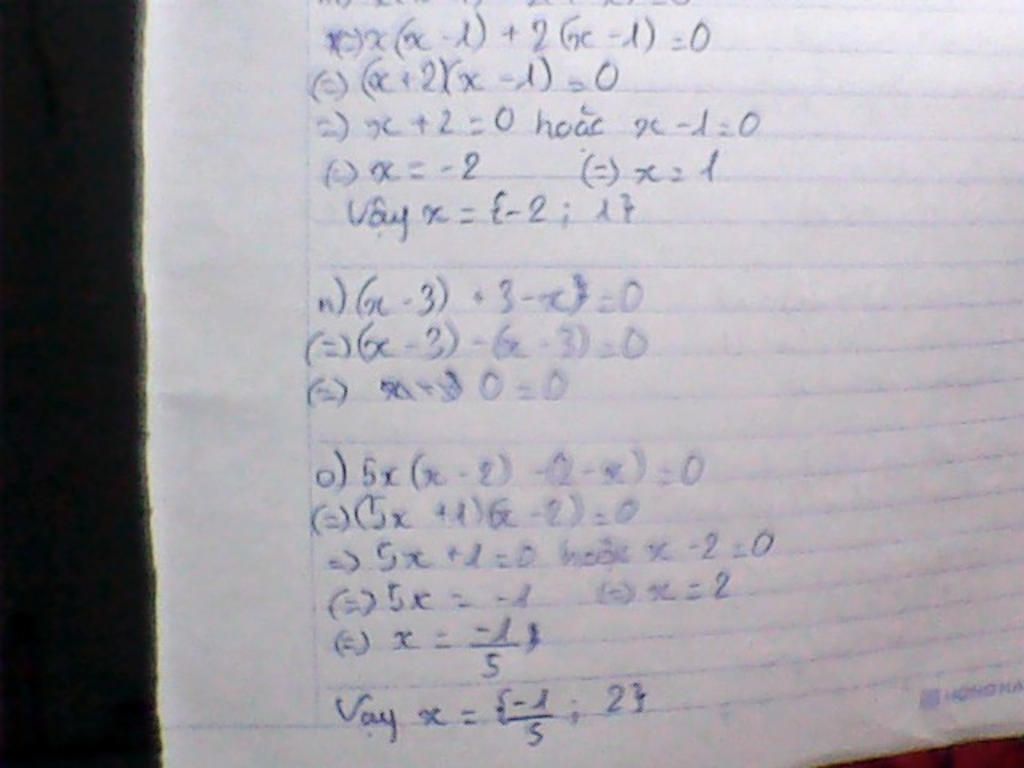 (=) x(x - 1) + 2(x - 1) = 0
(=) (x + 2)(x - 1) = 0
=) x + 2 = 0 hoặc x - 1 = 0
(=) x = -2 (=) x = 1
Vậy x = {-2 ; 1}
n) (x - 3) + 3 - x = 0
(=) (x - 3) - (x - 3) = 0
(=) 0 = 0
o) 5x(x - 2) - (2 - x) = 0
(=) (5x + 1)(x - 2) = 0
=) 5x + 1 = 0 hoặc x - 2 = 0
(=) 5x = -1 (=) x = 2
(=) x = -1/5
Vậy x = {-1/5 ; 2}
HONG HA